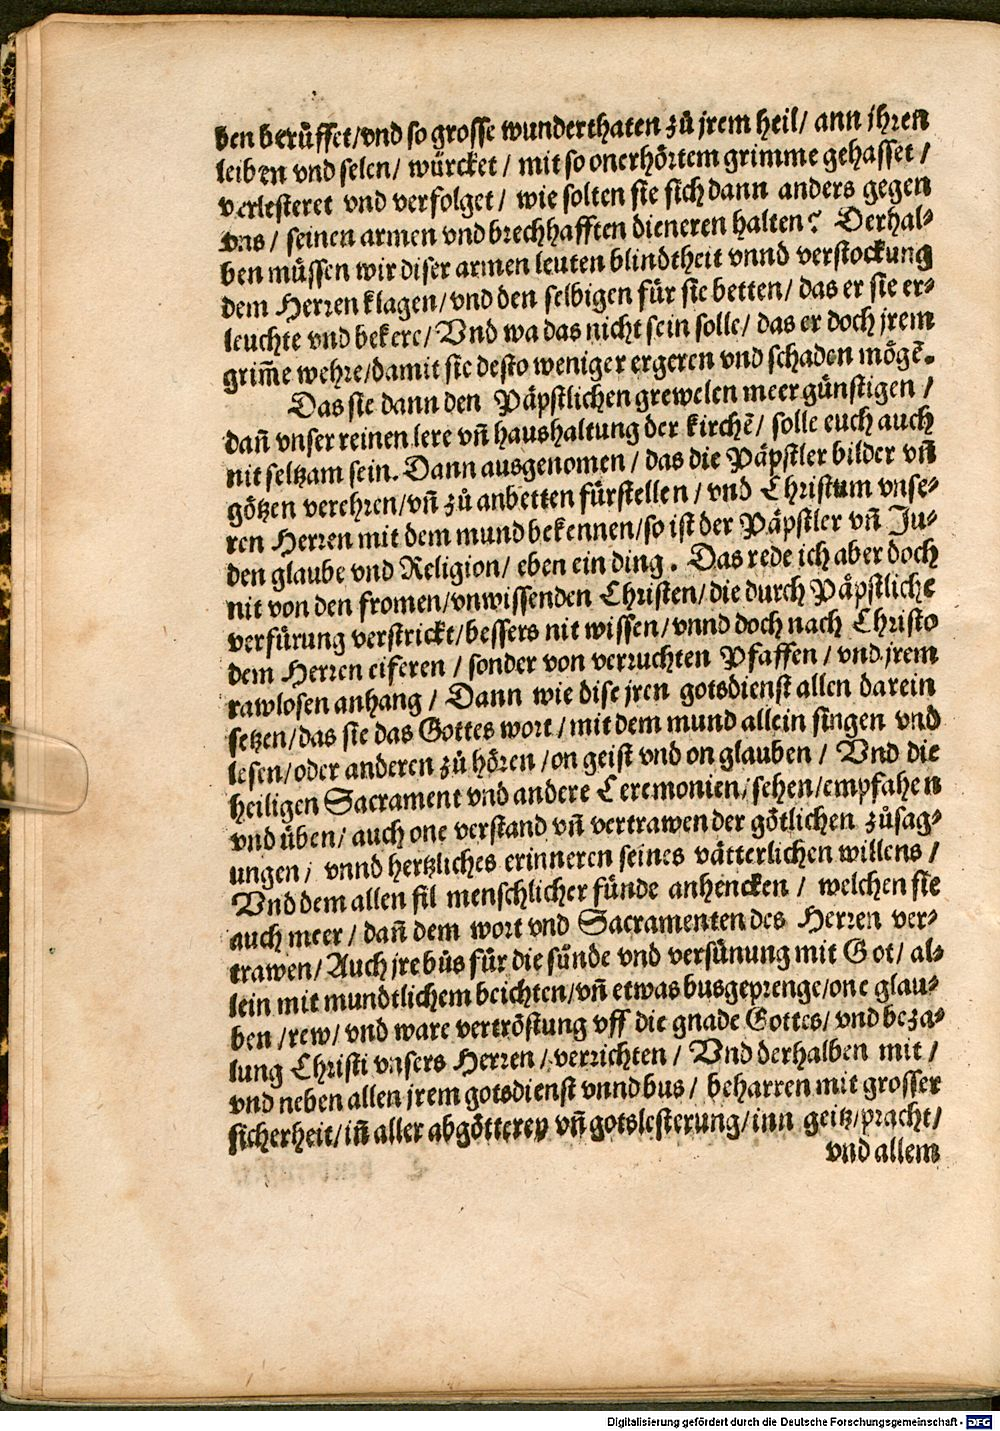 den berůffet/vnd so grosse wunderthaten zů jrem heil/ ann jhren
leiben vnd selen/ würcket / mit so onerhörtem grimme gehasset /
verlesteret vnd verfolget / wie solten sie sich dann anders gegen
vns / seinen armen vnd brechhafften dieneren halten? Derhal-
ben müssen wir diser armen leuten blindtheit vnnd verstockung
dem Herren klagen/ vnd den selbigen für sie betten/ das er sie er-
leuchte vnd bekere/ Vnd wa das nicht sein solle/ das er doch jrem
grim̃e wehre/damit sie desto weniger ergeren vnd schaden mögẽ.
Das sie dann den Päpstlichen grewelen meer günstigen /
dañ vnser reinen lere vñ haushaltung der kirchẽ/ solle euch auch
nit seltzam sein. Dann ausgenomen / das die Päpstler bilder vñ
götzen verehren/vñ zů anbetten fürstellen / vnd Christum vnse-
ren Herren mit dem mund bekennen/so ist der Päpstler vñ Ju-
den glaube vnd Religion/ eben ein ding. Das rede ich aber doch
nit von den fromen/vnwissenden Christen/die durch Päpstliche
verfürung verstrickt/bessers nit wissen/vnnd doch nach Christo
dem Herren eiferen / sonder von verruchten Pfaffen / vnd jrem
rawlosen anhang / Dann wie dise jren gotsdienst allen darein
setzen/das sie das Gottes wort / mit dem mund allein singen vnd
lesen/oder anderen zů hören /on geist vnd on glauben / Vnd die
heiligen Sacrament vnd andere Ceremonien/sehen/empfahen
vnd üben/ auch one verstand vñ vertrawen der götlichen zůsag-
ungen/ vnnd hertzliches erinneren seines vätterlichen willens /
Vnd dem allen fil menschlicher fünde anhencken / welchen sie
auch meer / dañ dem wort vnd Sacramenten des Herren ver-
trawen/ Auch jre bůs für die sünde vnd versünung mit Got/ al-
lein mit mundtlichem beichten/vñ etwas busgeprenge/one glau-
ben /rew/ vnd ware vertröstung vff die gnade Gottes/ vnd beza-
lung Christi vnsers Herren / verrichten / Vnd derhalben mit /
vnd neben allen jrem gotsdienst vnnd bus / beharren mit grosser
sicherheit/iñ aller abgötterey vñ gotslesterung/inn geitz/pracht/
vnd allem
Digitalisierung gefördert durch die Deutsche Forschungsgemeinschaft - DFG